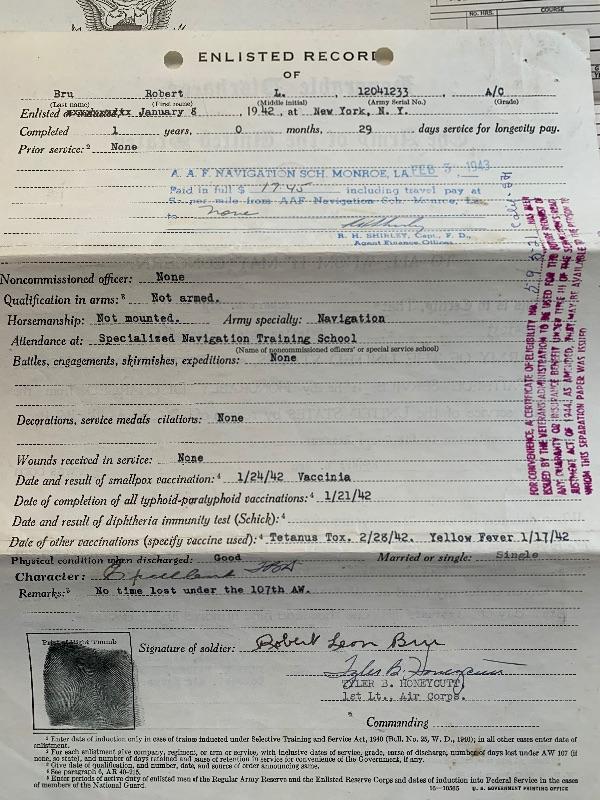 NO. HRS.
COURSE
ENLISTED RECORD
OF
Bru Robert L. 12041233 A/C
(Last name) (First name) (Middle initial) (Army Serial No.) (Grade)
Enlisted January 8, 1942, at New York, N. Y.
Completed 1 years, 0 months, 29 days service for longevity pay.
Prior service:² None
A. A. F. NAVIGATION SCH. MONROE, LA. FEB 3 1943
Paid in full $ 17.45 including travel pay at
5¢ per mile from AAF Navigation Sch. Monroe, La.
to none
R. H. SHIRLEY, Capt., F. D.,
Agent Finance Officer
Noncommissioned officer: None
Qualification in arms:³ Not armed.
Horsemanship: Not mounted. Army specialty: Navigation
Attendance at: Specialized Navigation Training School
(Name of noncommissioned officers' or special service school)
Battles, engagements, skirmishes, expeditions: None
Decorations, service medals citations: None
Wounds received in service: None
Date and result of smallpox vaccination:⁴ 1/24/42 Vaccinia
Date of completion of all typhoid-paratyphoid vaccinations:⁴ 1/21/42
Date and result of diphtheria immunity test (Schick):⁴
Date of other vaccinations (specify vaccine used):⁴ Tetanus Tox. 2/28/42. Yellow Fever 1/17/42
Physical condition when discharged: Good Married or single: Single
Character: Excellent
Remarks:⁵ No time lost under the 107th AW.
Print of Right Thumb
Signature of soldier: Robert Leon Bru
Tyler B. Honeycutt
TYLER B. HONEYCUTT
1st Lt., Air Corps.
Commanding
¹ Enter date of induction only in case of trainee inducted under Selective Training and Service Act, 1940 (Bull. No. 25, W. D., 1940); in all other cases enter date of
enlistment.
² For each enlistment give company, regiment, or arm or service, with inclusive dates of service, grade, cause of discharge, number of days lost under AW 107 (if
none, so state), and number of days retained and cause of retention in service for convenience of the Government, if any.
³ Give date of qualification, and number, date, and source of order announcing same.
⁴ See paragraph 6, AR 40-215.
⁵ Enter periods of active duty of enlisted men of the Regular Army Reserve and the Enlisted Reserve Corps and dates of induction into Federal Service in the cases
of members of the National Guard.
16—10565 U. S. GOVERNMENT PRINTING OFFICE
FOR CONVENIENCE, A CERTIFICATE OF ELIGIBILITY NO. HAS BEEN
ISSUED BY THE VETERANS ADMINISTRATION TO BE USED FOR THE FUTURE REQUEST OF
ANY GUARANTY OR INSURANCE BENEFIT UNDER TITLE III OF THE SERVICEMEN'S READ
JUSTMENT ACT OF 1944, AS AMENDED, THAT MAY BE AVAILABLE TO THE PERSON TO
WHOM THIS SEPARATION PAPER WAS ISSUED